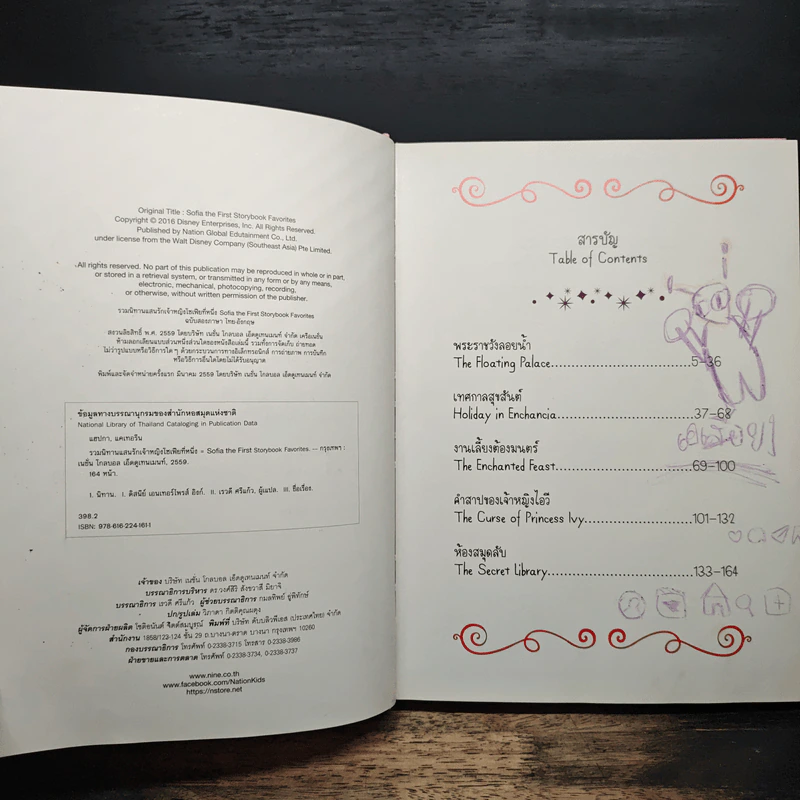 Original Title : Sofia the First Storybook Favorites
Copyright © 2016 Disney Enterprises, Inc. All Rights Reserved.
Published by Nation Global Edutainment Co., Ltd.
under license from the Walt Disney Company (Southeast Asia) Pte Limited.
All rights reserved. No part of this publication may be reproduced in whole or in part,
or stored in a retrieval system, or transmitted in any form or by any means,
electronic, mechanical, photocopying, recording,
or otherwise, without written permission of the publisher.
รวมนิทานแสนรักเจ้าหญิงโซเฟียที่หนึ่ง Sofia the First Storybook Favorites
ฉบับสองภาษา ไทย-อังกฤษ
สงวนลิขสิทธิ์ พ.ศ. 2559 โดยบริษัท เนชั่น โกลบอล เอ็ดดูเทนเมนท์ จำกัด เครือเนชั่น
ห้ามลอกเลียนแบบส่วนหนึ่งส่วนใดของหนังสือเล่มนี้ รวมทั้งการจัดเก็บ ถ่ายทอด
ไม่ว่ารูปแบบหรือวิธีการใด ๆ ด้วยกระบวนการทางอิเล็กทรอนิกส์ การถ่ายภาพ การบันทึก
หรือวิธีการอื่นใดโดยไม่ได้รับอนุญาต
พิมพ์และจัดจำหน่ายครั้งแรก มีนาคม 2559 โดยบริษัท เนชั่น โกลบอล เอ็ดดูเทนเมนท์ จำกัด
ข้อมูลทางบรรณานุกรมของสำนักหอสมุดแห่งชาติ
National Library of Thailand Cataloging in Publication Data
แฮปกา, แคเทอรีน
รวมนิทานแสนรักเจ้าหญิงโซเฟียที่หนึ่ง = Sofia the First Storybook Favorites. -- กรุงเทพฯ :
เนชั่น โกลบอล เอ็ดดูเทนเมนท์, 2559.
164 หน้า.
I. นิทาน. I. ดิสนีย์ เอนเทอร์ไพรส์ อิงก์. II. เรวดี ศรีแก้ว, ผู้แปล. III. ชื่อเรื่อง.
398.2
ISBN: 978-616-224-161-1
เจ้าของ บริษัท เนชั่น โกลบอล เอ็ดดูเทนเมนท์ จำกัด
บรรณาธิการบริหาร ดร.วงศ์สิริ สังขวาสี มิยาจิ
บรรณาธิการ เรวดี ศรีแก้ว ผู้ช่วยบรรณาธิการ กมลทิพย์ อู่พิทักษ์
ปก/รูปเล่ม วิภาดา กิตติคุณผดุง
ผู้จัดการฝ่ายผลิต โชติอนันต์ จิตต์สมบูรณ์ พิมพ์ที่ บริษัท ดับบลิวพีเอส (ประเทศไทย) จำกัด
สำนักงาน 1858/123-124 ชั้น 29 ถ.บางนา-ตราด บางนา กรุงเทพฯ 10260
กองบรรณาธิการ โทรศัพท์ 0-2338-3715 โทรสาร 0-2338-3986
ฝ่ายขายและการตลาด โทรศัพท์ 0-2338-3734, 0-2338-3737
www.nine.co.th
www.facebook.com/NationKids
https://nstore.net
สารบัญ
Table of Contents
พระราชวังลอยน้ำ
The Floating Palace........5-36
เทศกาลสุขสันต์
Holiday in Enchancia........37-68
งานเลี้ยงต้องมนตร์
The Enchanted Feast........69-100
คำสาปของเจ้าหญิงไอวี่
The Curse of Princess Ivy........101-132
ห้องสมุดลับ
The Secret Library........133-164